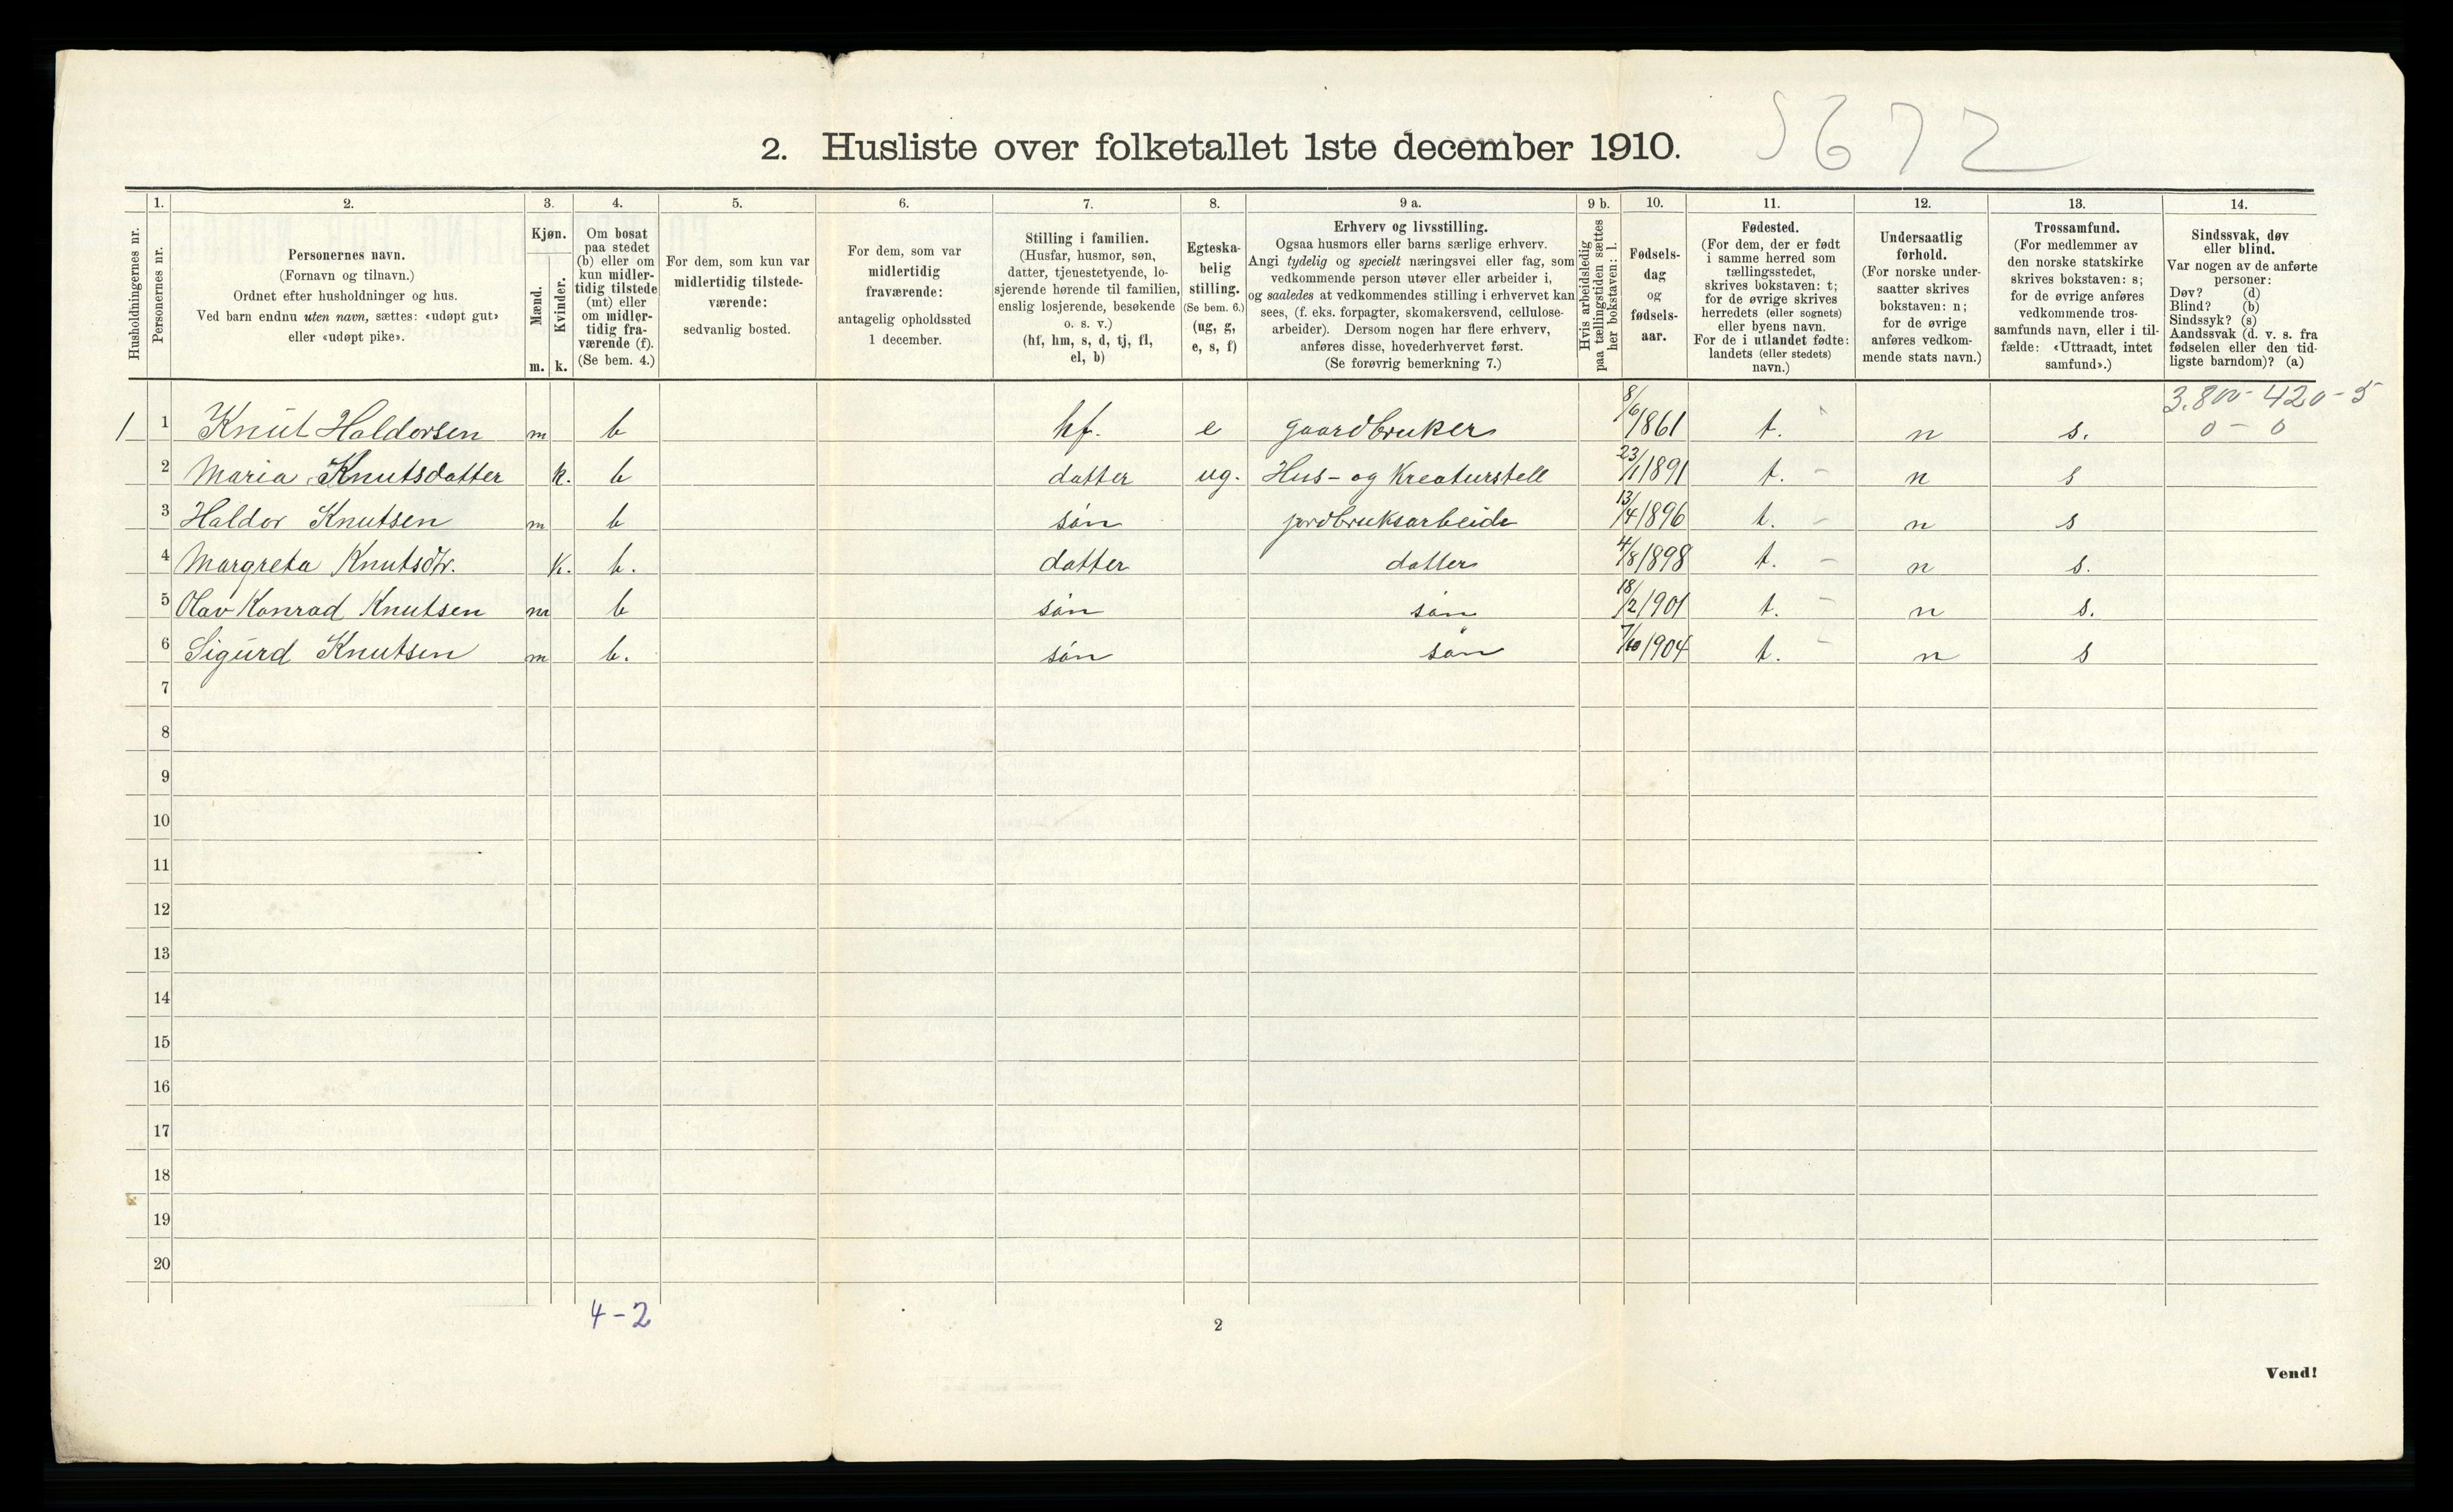 5672
2. Husliste over folketallet 1ste december 1910.
Husholdningernes nr.
1. Personernes nr.
2. Personernes navn.
(Fornavn og tilnavn.)
Ordnet efter husholdninger og hus.
Ved barn endnu uten navn, sættes: «udøpt gut»
eller «udøpt pike».
3. Kjøn.
Mænd. m.
Kvinder. k.
4. Om bosat
paa stedet
(b) eller om
kun midler-
tidig tilstede
(mt) eller
om midler-
tidig fra-
værende (f).
(Se bem. 4.)
5. For dem, som kun var
midlertidig tilstede-
værende:
sedvanlig bosted.
6. For dem, som var
midlertidig
fraværende:
antagelig opholdssted
1 december.
7. Stilling i familien.
(Husfar, husmor, søn,
datter, tjenestetyende, lo-
sjerende hørende til familien,
enslig losjerende, besøkende
o. s. v.)
(hf, hm, s, d, tj, fl,
el, b)
8. Egteska-
belig
stilling.
(Se bem. 6.)
(ug, g,
e, s, f)
9 a. Erhverv og livsstilling.
Ogsaa husmors eller barns særlige erhverv.
Angi tydelig og specielt næringsvei eller fag, som
vedkommende person utøver eller arbeider i,
og saaledes at vedkommendes stilling i erhvervet kan
sees, (f. eks. forpagter, skomakersvend, cellulose-
arbeider). Dersom nogen har flere erhverv,
anføres disse, hovederhvervet først.
(Se forøvrig bemerkning 7.)
9 b. Hvis arbeidsledig
paa tællingstiden sættes
her bokstaven: l.
10. Fødsels-
dag
og
fødsels-
aar.
11. Fødested.
(For dem, der er født
i samme herred som
tællingsstedet,
skrives bokstaven: t;
for de øvrige skrives
herredets (eller sognets)
eller byens navn.
For de i utlandet fødte:
landets (eller stedets)
navn.)
12. Undersaatlig
forhold.
(For norske under-
saatter skrives
bokstaven: n;
for de øvrige
anføres vedkom-
mende stats navn.)
13. Trossamfund.
(For medlemmer av
den norske statskirke
skrives bokstaven: s;
for de øvrige anføres
vedkommende tros-
samfunds navn, eller i til-
fælde: «Uttraadt, intet
samfund».)
14. Sindssvak, døv
eller blind.
Var nogen av de anførte
personer:
Døv? (d)
Blind? (b)
Sindssyk? (s)
Aandssvak (d. v. s. fra
fødselen eller den tid-
ligste barndom)? (a)
3.800 - 420 - 5
1 1 Knut Haldorsen m b hf. e gaardbruker 8/6 1861 t. n s. 0 - 0
2 Maria Knutsdatter k. b datter ug. Hus- og Kreaturstell 23/1 1891 t. - n s
3 Haldor Knutsen m b søn jordbruksarbeide 13/4 1896 t. - n s
4 Margreta Knutsdtr. k. b. datter datter 4/8 1898 t. - n s.
5 Olav Konrad Knutsen m b søn søn 18/2 1901 t. - n s.
6 Sigurd Knutsen m b. søn søn 7/10 1904 t. - n s
7
8
9
10
11
12
13
14
15
16
17
18
19
20
4 - 2
2
Vend!